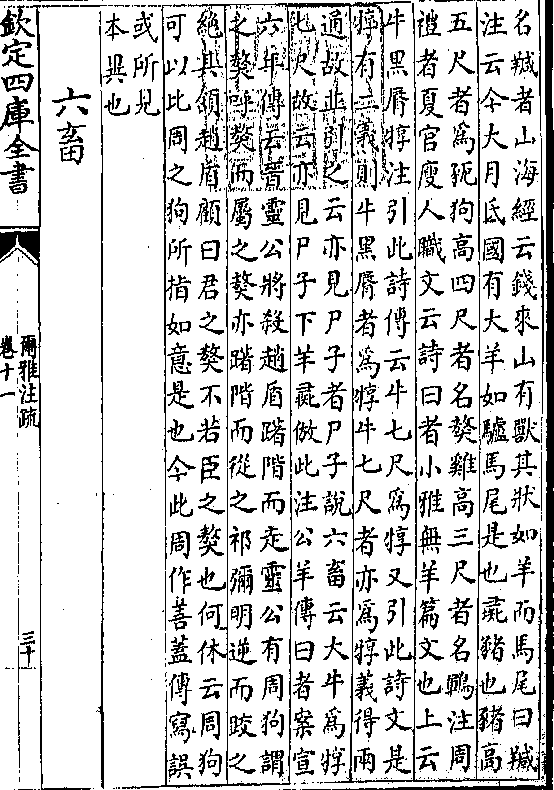 名羬者山海經云錢來山有獸其狀如羊而馬尾曰羬
注云今大月氐國有大羊如驢馬尾是也彘豬也豬高
五尺者爲豟狗高四尺者名獒雞高三尺者名鶤注周
禮者夏官廋人職文云詩曰者小雅無羊篇文也上云
牛黑脣犉注引此詩傳云牛七尺爲犉又引此詩文是
犉有二義則牛黑脣者爲犉牛七尺者亦爲犉義得兩
通故此引之云亦見尸子者尸子說六畜云大牛爲犉
七尺故云亦見尸子下羊彘倣此注公羊傳曰者案宣
六年傳云晉靈公將殺趙盾躇階而走靈公有周狗謂
之獒呼獒而屬之獒亦躇階而從之祁彌明逆而踆之
絕其頷趙盾顧曰君之獒不若臣之獒也何休云周狗
可以比周之狗所指如意是也今此周作害蓋傳寫誤
或所見
本異也
六畜
欽定四庫全書
爾雅注疏
卷十一
三十